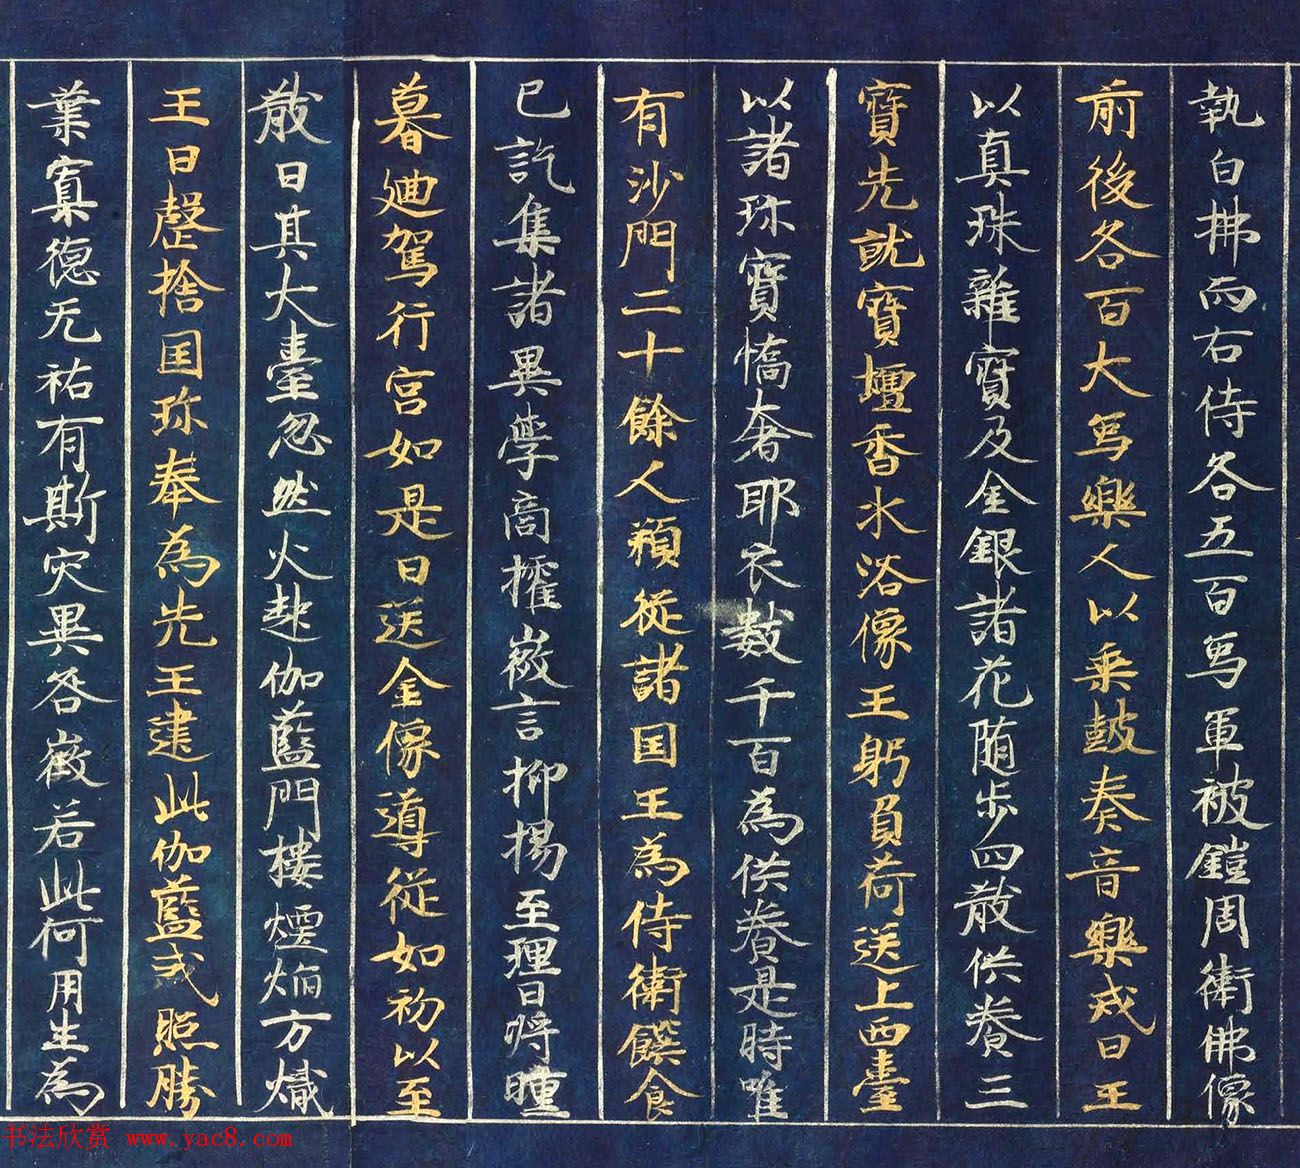 執白拂而右侍各五百烏軍被鎧周衛佛像
前後各百大烏樂人以乘鼓奏音樂戒日王
以真珠雜寶及金銀諸花随步四散供養三
寶先就寶壇香水浴像王躬負荷送上西臺
以諸珎寶憍奢耶衣數千百為供養是時唯
有沙門二十餘人預從諸国王為侍衛饌食
已訖集諸異學商搉微言抑揚至理日將曛
暮廻駕行宮如是日送金像導從如初以至
散日其大臺忽然火起伽藍門樓煙焰方熾
王曰罄捨国珎奉為先王建此伽藍式照勝
葉寡德无祐有斯灾異咎徵若此何用生為
书法欣赏 www.yac8.com